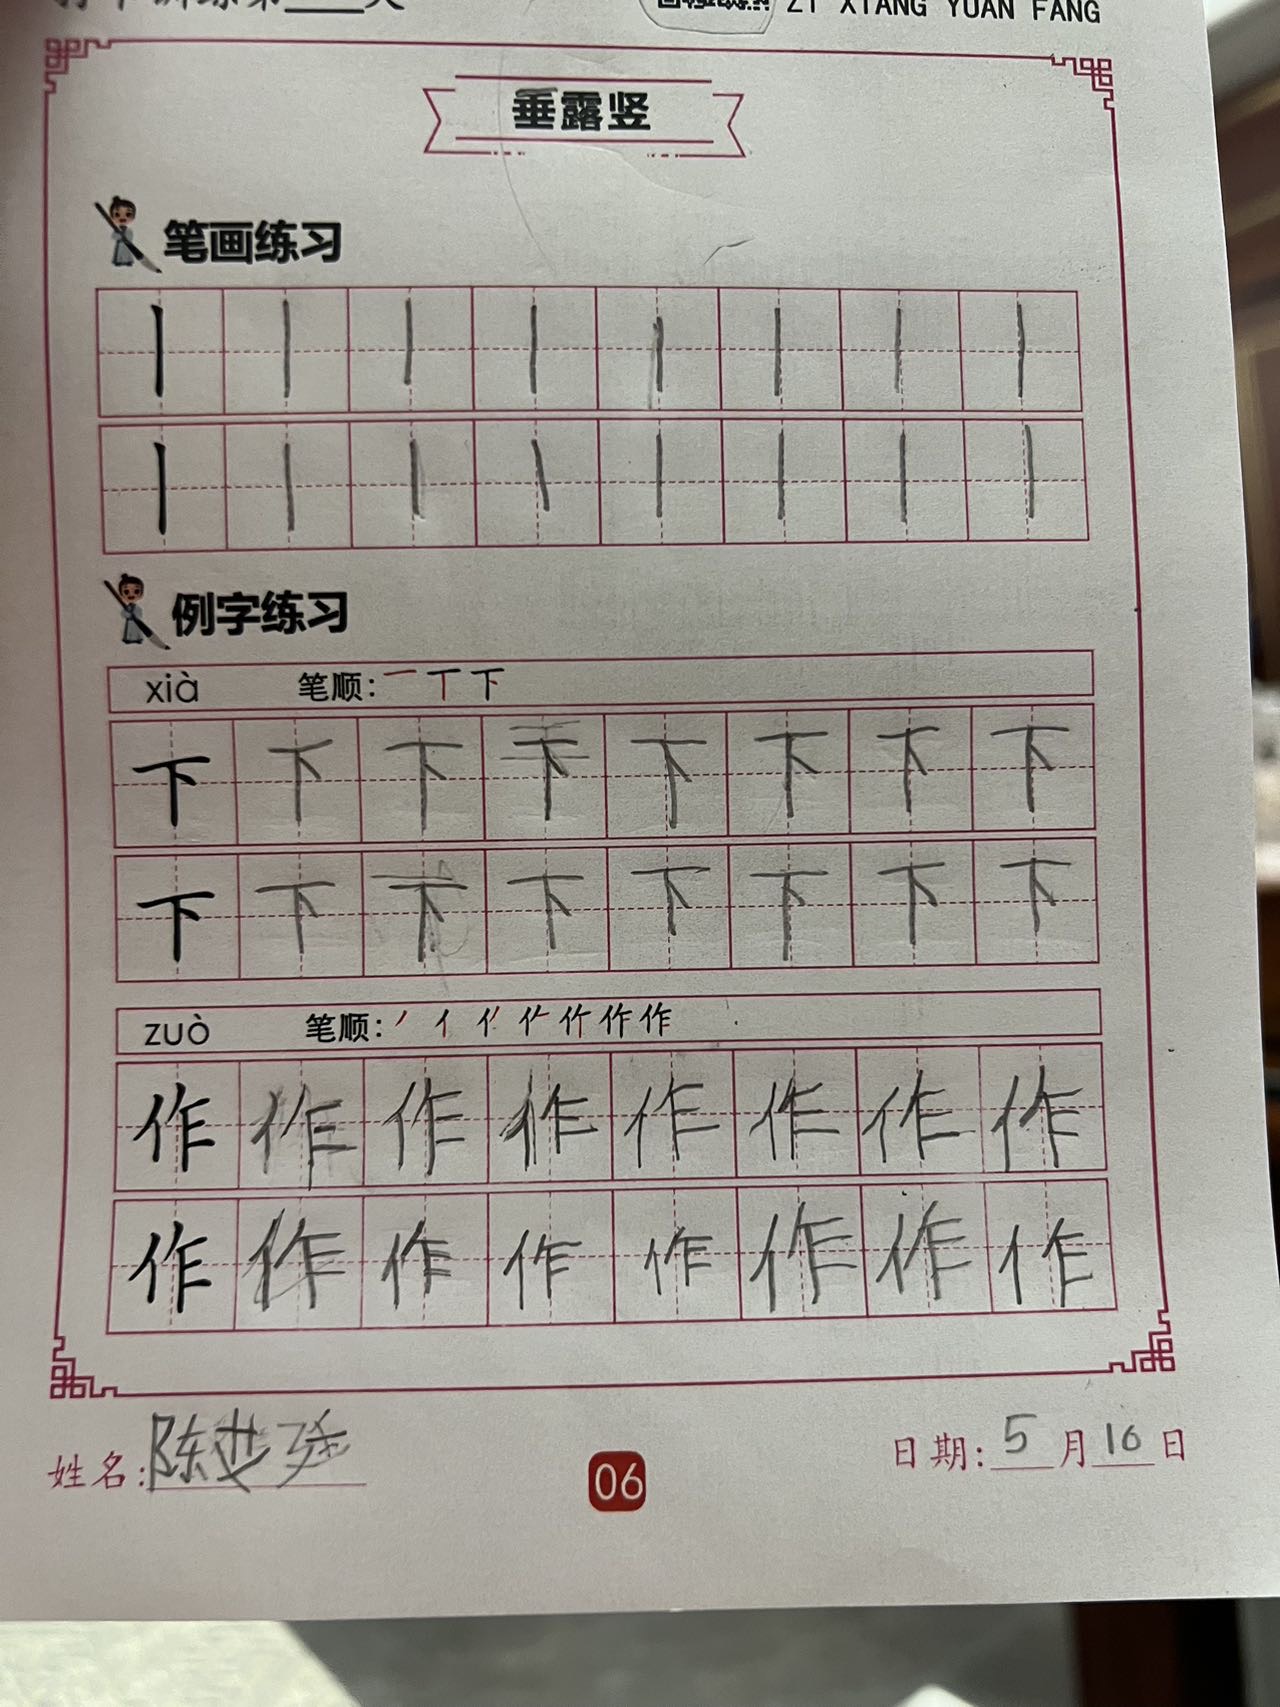 ZI XIANG YUAN FANG
垂露竖
笔画练习
丨 丨 丨 丨 丨 丨 丨 丨
丨 丨 丨 丨 丨 丨 丨 丨
例字练习
xià 笔顺: 一 丅 下
下 下 下 下 下 下 下 下
下 下 下 下 下 下 下 下
zuò 笔顺: 作
作 作 作 作 作 作 作 作
作 作 作 作 作 作 作 作
姓名: 陈
日期: 5 月 16 日
06